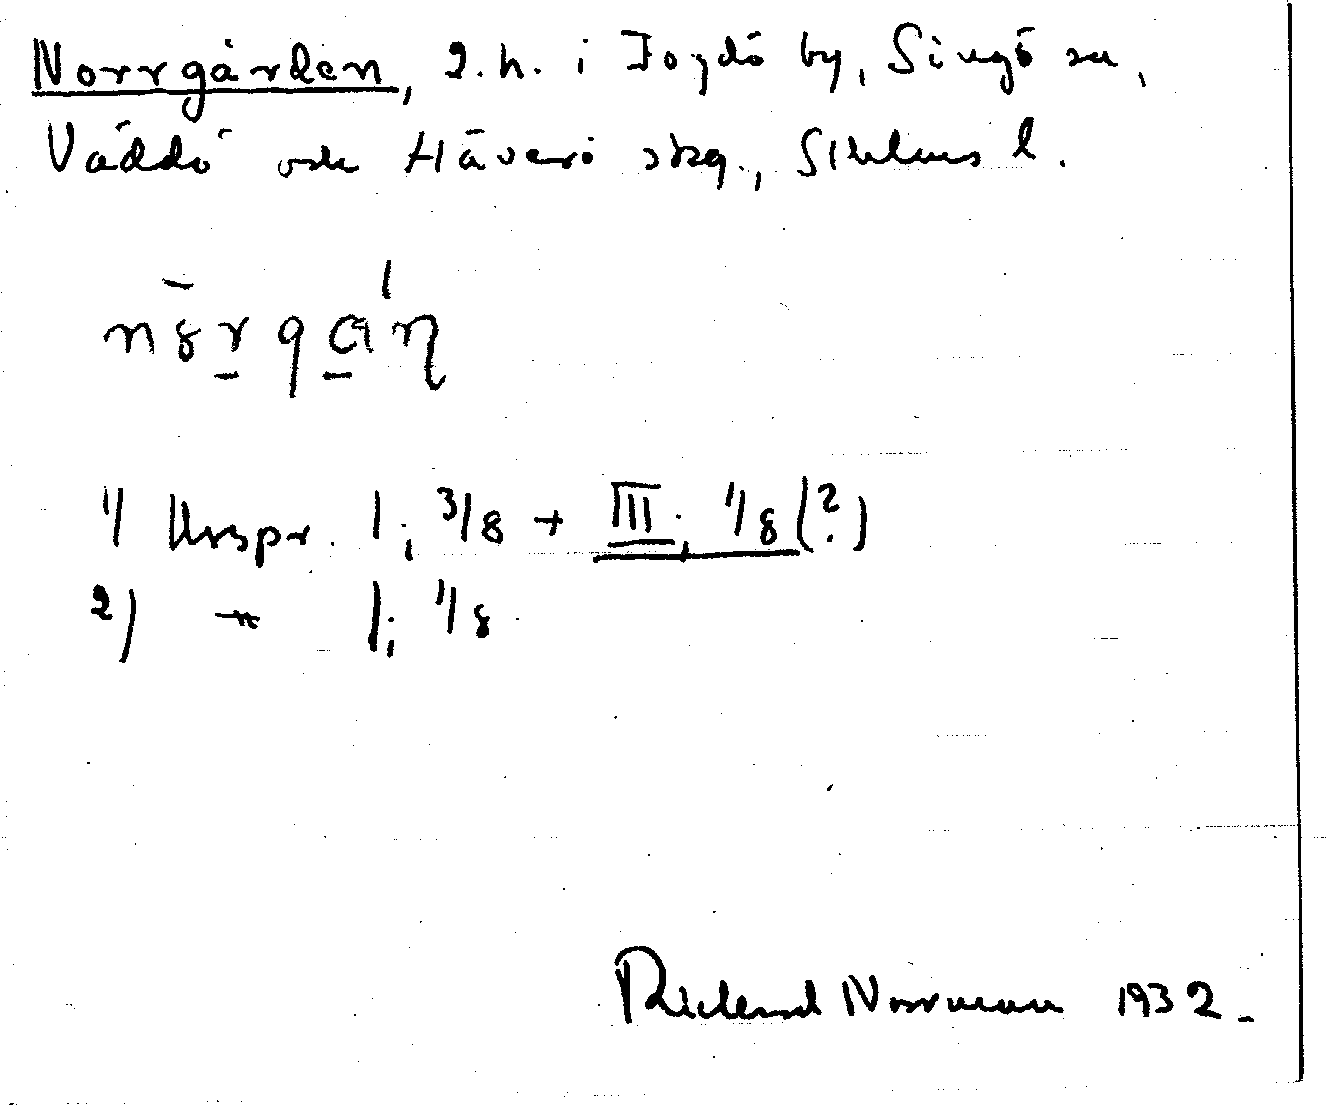 Norrgården, 2.h. i Fogdö by, Singö sn,
Väddö och Häverö skg., Sthlms l.
1) Urspr. 1; 3/8 + III; 1/8 (?)
2) –"– 1; 1/8
Rickard Norrman 1932.